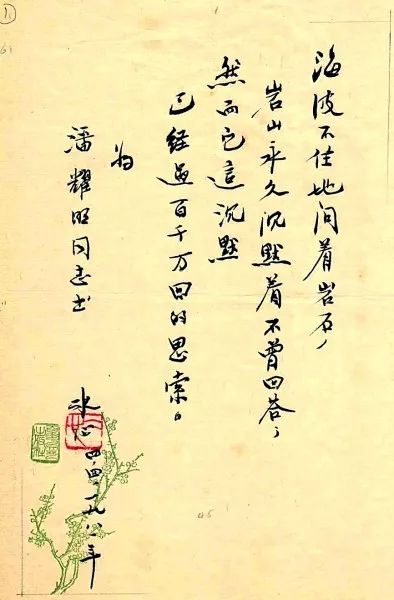 海波不住地问着岩石，
岩山永久沉默着不曾回答，
然而它這沉默
已经過百千万回的思索。
为
潘耀明同志书
冰心 四,四,一九八一年
45